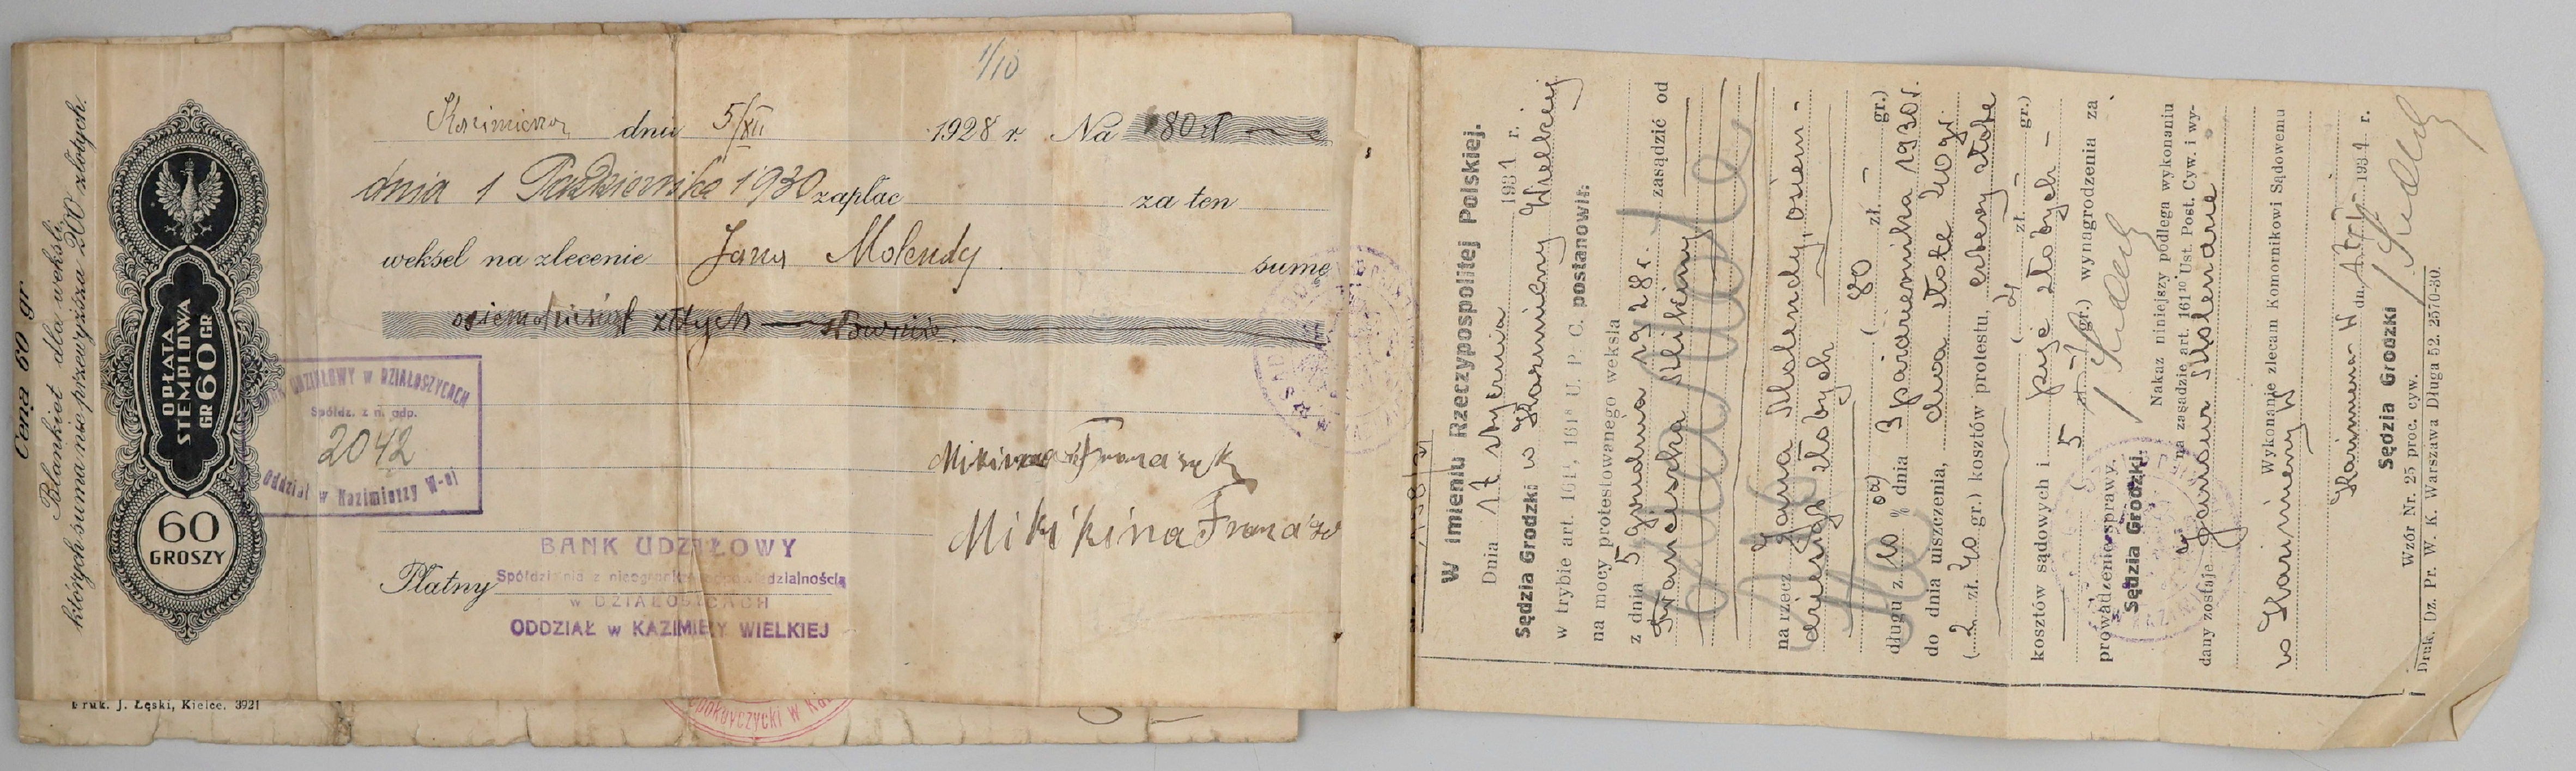 Cena 60 gr.
Blankiet dla weksli,
których suma nie przewyższa 200 złotych.
OPŁATA
STEMPLOWA
GR 60 GR
60
GROSZY
Druk. J. Łęski, Kielce. 3921
1/10
dnia 5/XII 1928 r. Na 80 zł
dnia 1 Października 1930 zapłac za ten
weksel na zlecenie Jana Molendy sumę
osiemdziesiąt złotych
UDZIAŁOWY w DZIAŁOSZYCACH
Spółdz. z n. odp.
2042
Oddział w Kazimierzy W-ej
Mikikina Franciszek
Mikikina
Płatny
BANK UDZIAŁOWY
Spółdzielnia z nieogranicz. odpowiedzialnością
w DZIAŁOSZYCACH
ODDZIAŁ w KAZIMIERZY WIELKIEJ
W imieniu Rzeczypospolitej Polskiej.
Dnia 17 stycznia 1931 r.
Sędzia Grodzki w Kazimierzy Wielkiej
w trybie art. 161¹, 161⁸ U. P. C. postanowił:
na mocy protestowanego weksla
z dnia 5 grudnia 1928 r. zasądzić od
Franciszka Mikikiny
na rzecz Jana Molendy, osiem-
dziesiąt złotych
( 80 zł. - gr.)
długu z 10 % od dnia 3 października 1930 r.
do dnia uiszczenia, dwa złote 40 gr.
( 2 zł. 40 gr.) kosztów protestu, cztery złote
( 4 zł. - gr.)
kosztów sądowych i pięć złotych -
( 5 zł. - gr.) wynagrodzenia za
prowadzenie sprawy.
Sędzia Grodzki.
Nakaz niniejszy podlega wykonaniu
na zasadzie art. 161¹⁰ Ust. Post. Cyw. i wy-
dany zostaje Janowi Molendzie
Wykonanie zlecam Komornikowi Sądowemu
w Kazimierzy W
Kazimierza W dn. 193 r.
Sędzia Grodzki
Wzór Nr. 25 proc. cyw.
Druk. Dz. Pr. W. K. Warszawa Długa 52. 2570-30.